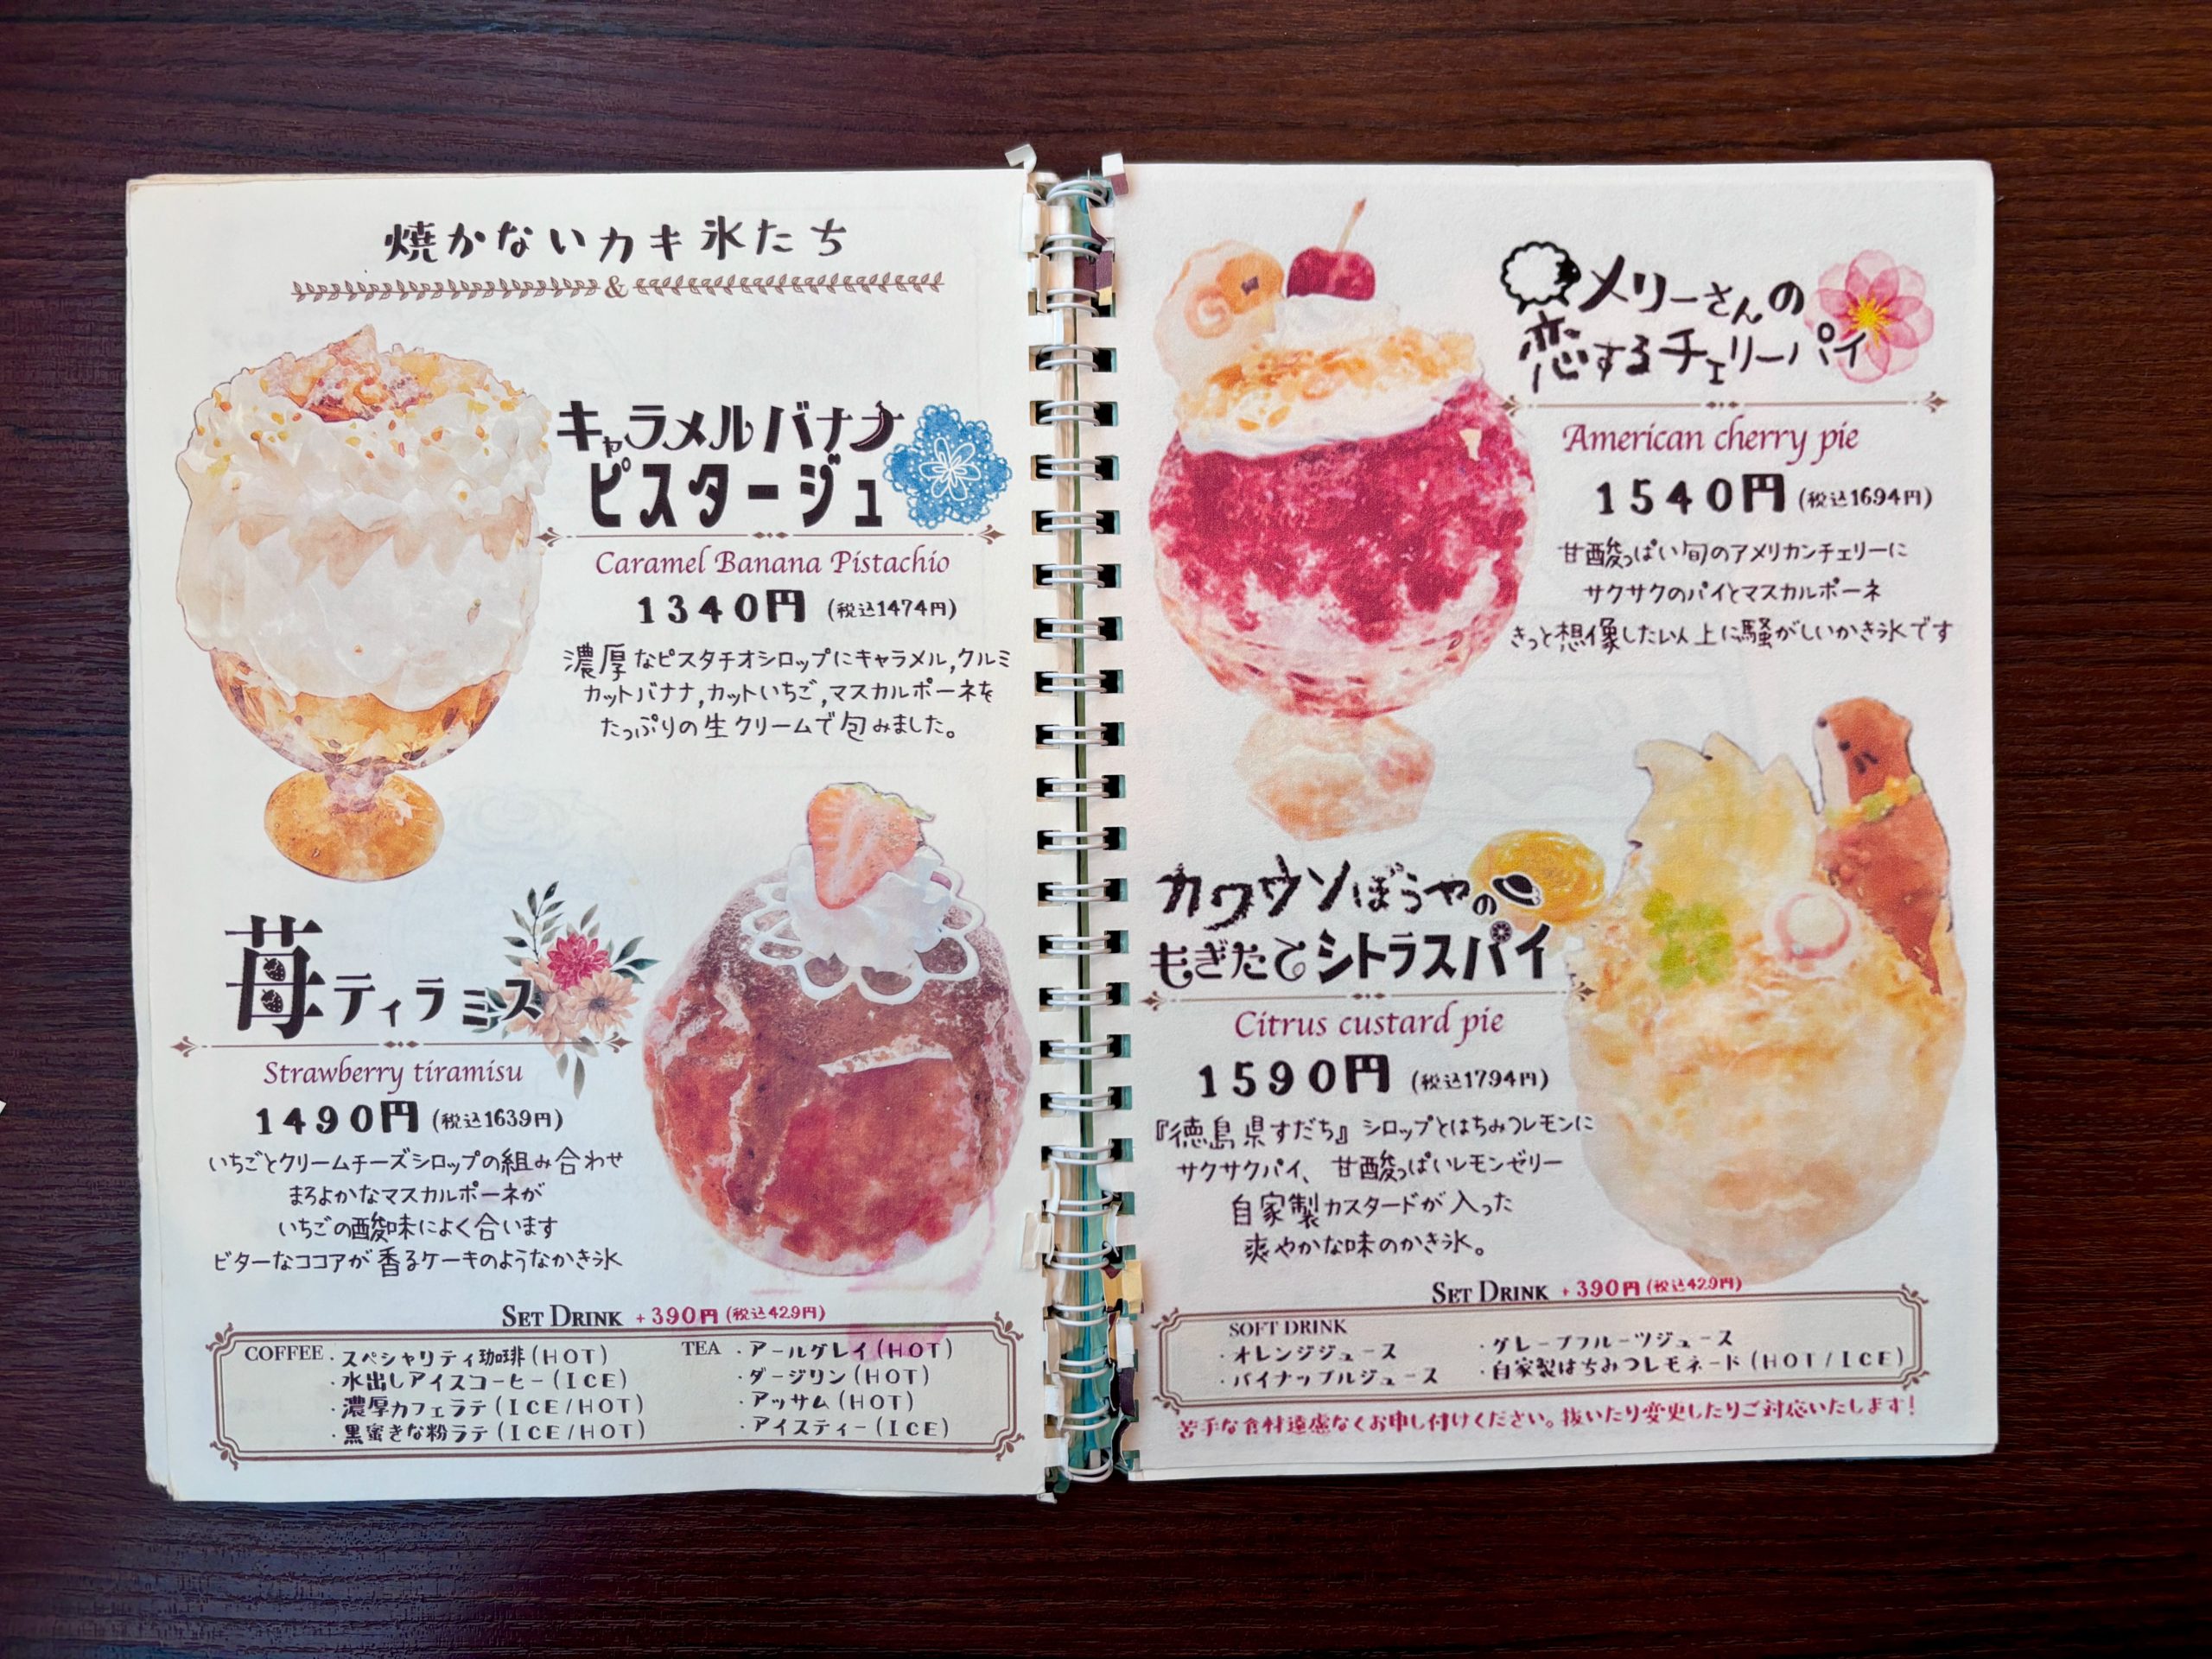 焼かないカキ氷たち
&
キャラメルバナナ
ピスタージュ
Caramel Banana Pistachio
1340円 (税込1474円)
濃厚なピスタチオシロップにキャラメル,クルミ
カットバナナ,カットいちご,マスカルポーネを
たっぷりの生クリームで包みました。
苺ティラミス
Strawberry tiramisu
1490円 (税込1639円)
いちごとクリームチーズシロップの組み合わせ
まろよかなマスカルポーネが
いちごの酸味によく合います
ビターなココアが香るケーキのようなかき氷
SET DRINK +390円 (税込429円)
COFFEE ・スペシャリティ珈琲(HOT)
・水出しアイスコーヒー(ICE)
・濃厚カフェラテ(ICE/HOT)
・黒蜜きな粉ラテ(ICE/HOT)
TEA ・アールグレイ(HOT)
・ダージリン(HOT)
・アッサム(HOT)
・アイスティー(ICE)
メリーさんの
恋するチェリーパイ
American cherry pie
1540円 (税込1694円)
甘酸っぱい旬のアメリカンチェリーに
サクサクのパイとマスカルポーネ
きっと想像した以上に騒がしいかき氷です
カワウソぼうやの
もぎたてシトラスパイ
Citrus custard pie
1590円 (税込1794円)
『徳島県すだち』シロップとはちみつレモンに
サクサクパイ、甘酸っぱいレモンゼリー
自家製カスタードが入った
爽やかな味のかき氷。
SET DRINK +390円 (税込429円)
SOFT DRINK
・オレンジジュース
・パイナップルジュース
・グレープフルーツジュース
・自家製はちみつレモネード(HOT/ICE)
苦手な食材遠慮なくお申し付けください。抜いたり変更したりご対応いたします!